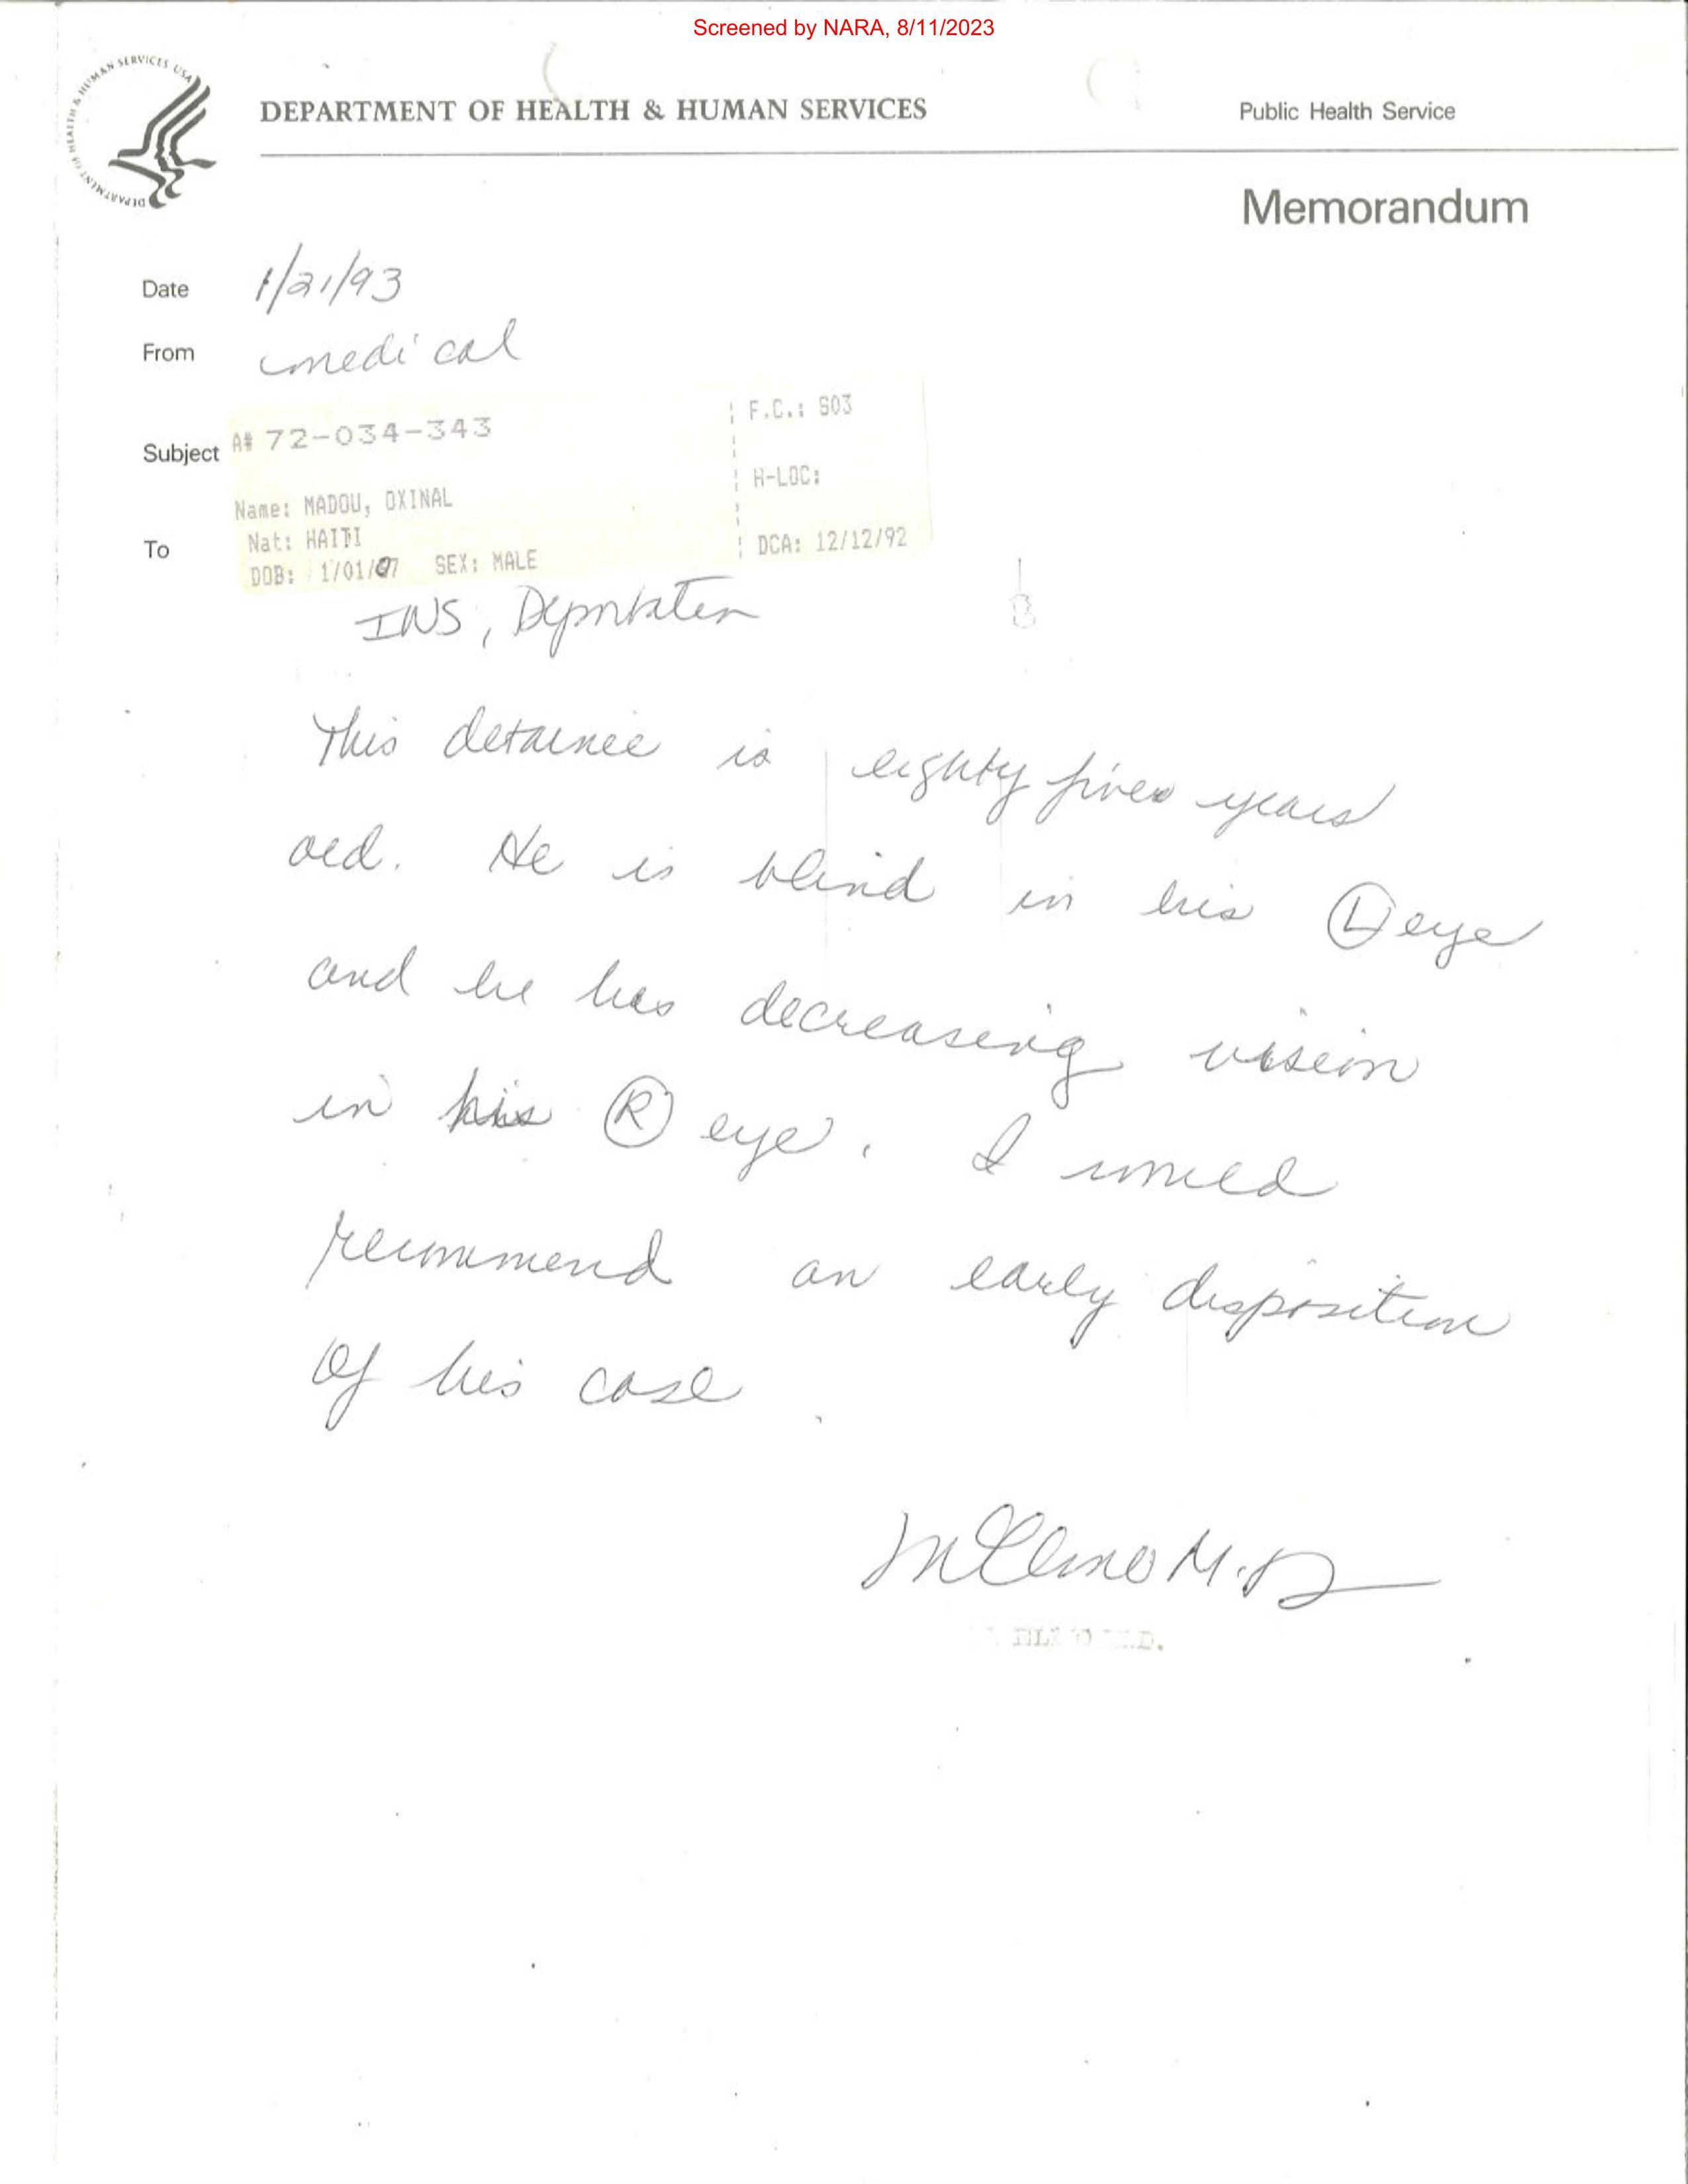 Screened by NARA, 8/11/2023
DEPARTMENT OF HEALTH & HUMAN SERVICES USA
DEPARTMENT OF HEALTH & HUMAN SERVICES
Public Health Service
Memorandum
Date 1/21/93
From medical
Subject A# 72-034-343
F.C.: S03
H-LOC:
Name: MADOU, OXINAL
To
Nat: HAITI
DCA: 12/12/92
DOB: 1/01/07 SEX: MALE
INS, Deportation
This detainee is eighty five years
old. He is blind in his Ⓛ eye
and he has decreasing vision
in his Ⓡ eye. I would
recommend an early disposition
of his case.
M.D.